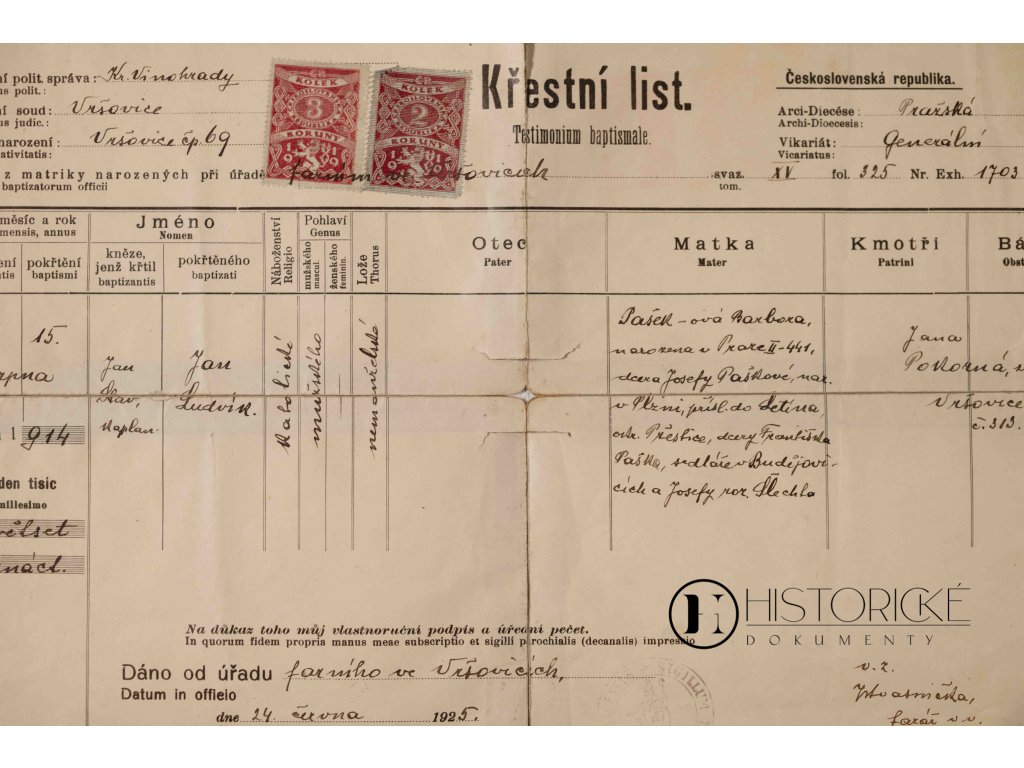 ní polit. správa: Kr. Vinohrady
us polit.:
soud: Vršovice
us judic.:
narození: Vršovice čp. 69
ativitatis:
z matriky narozených při úřadě farním ve Vršovicích
baptizatorum officii
ČR
KOLEK
3
KORUNY
1919
ČR
KOLEK
2
KORUNY
1919
Křestní list.
Testimonium baptismale.
svaz. XV fol. 325 Nr. Exh. 1703
tom.
Československá republika.
Arci-Diecése: Pražská
Archi-Dioecesis:
Vikariát: Generální
Vicariatus:
měsíc a rok
mensis, annus
ení pokřtění
tis baptismi
Jméno
Nomen
kněze,
jenž křtil
baptizantis
pokřtěného
baptizati
Náboženství
Religio
Pohlaví
Genus
mužského
mascul.
ženského
feminin.
Lože
Thorus
Otec
Pater
Matka
Mater
Kmotři
Patrini
Bá
Obst
15.
rpna
1 914
den tisíc
millesimo
větset
náct.
Jan
Slav,
kaplan
Jan
Ludvík.
katolické
mužského
nemanželské
Pašek-ová Barbora,
narozena v Praze II-441,
dcera Josefy Paškové, nar.
v Plzni, přísl. do Letina
okr. Přeštice, dcery Františka
Paška, sedláře v Budějovi-
cích a Josefy roz. Šlechta
Jana
Pokorná,
Vršovice
č. 313.
Na důkaz toho můj vlastnoruční podpis a úřední pečet.
In quorum fidem propria manus meae subscriptio et sigilli parochialis (decanalis) impressio
Dáno od úřadu farního ve Vršovicích,
Datum in offieio
dne 24. června 1925.
SIGILL
HISTORICKÉ
DOKUMENTY
v. z.
farář v. v.